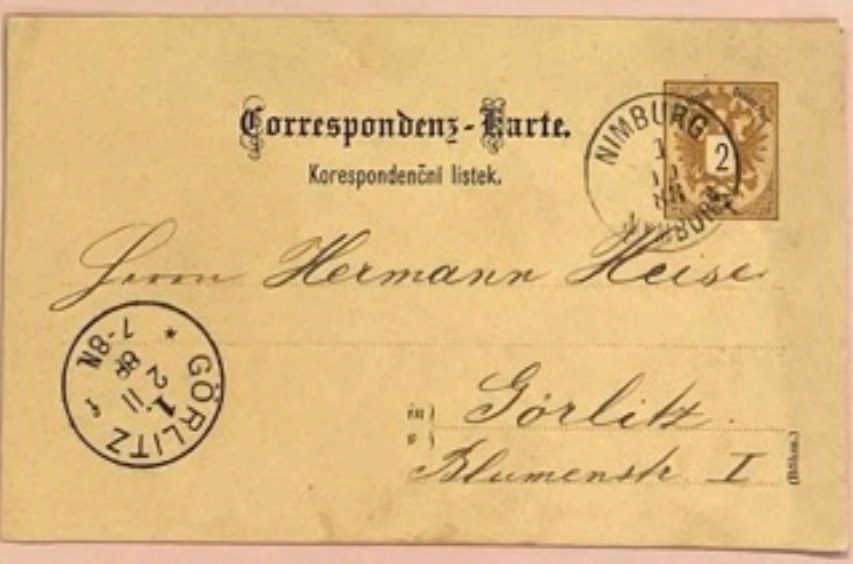 Correspondenz-Karte.
Korespondenční listek.
NIMBURG
2
Herrn Hermann Heise
GÖRLITZ
1.
2 11
88
7-8N.
*
in
v
Görlitz.
Blumenstr. I
(Böhm.)